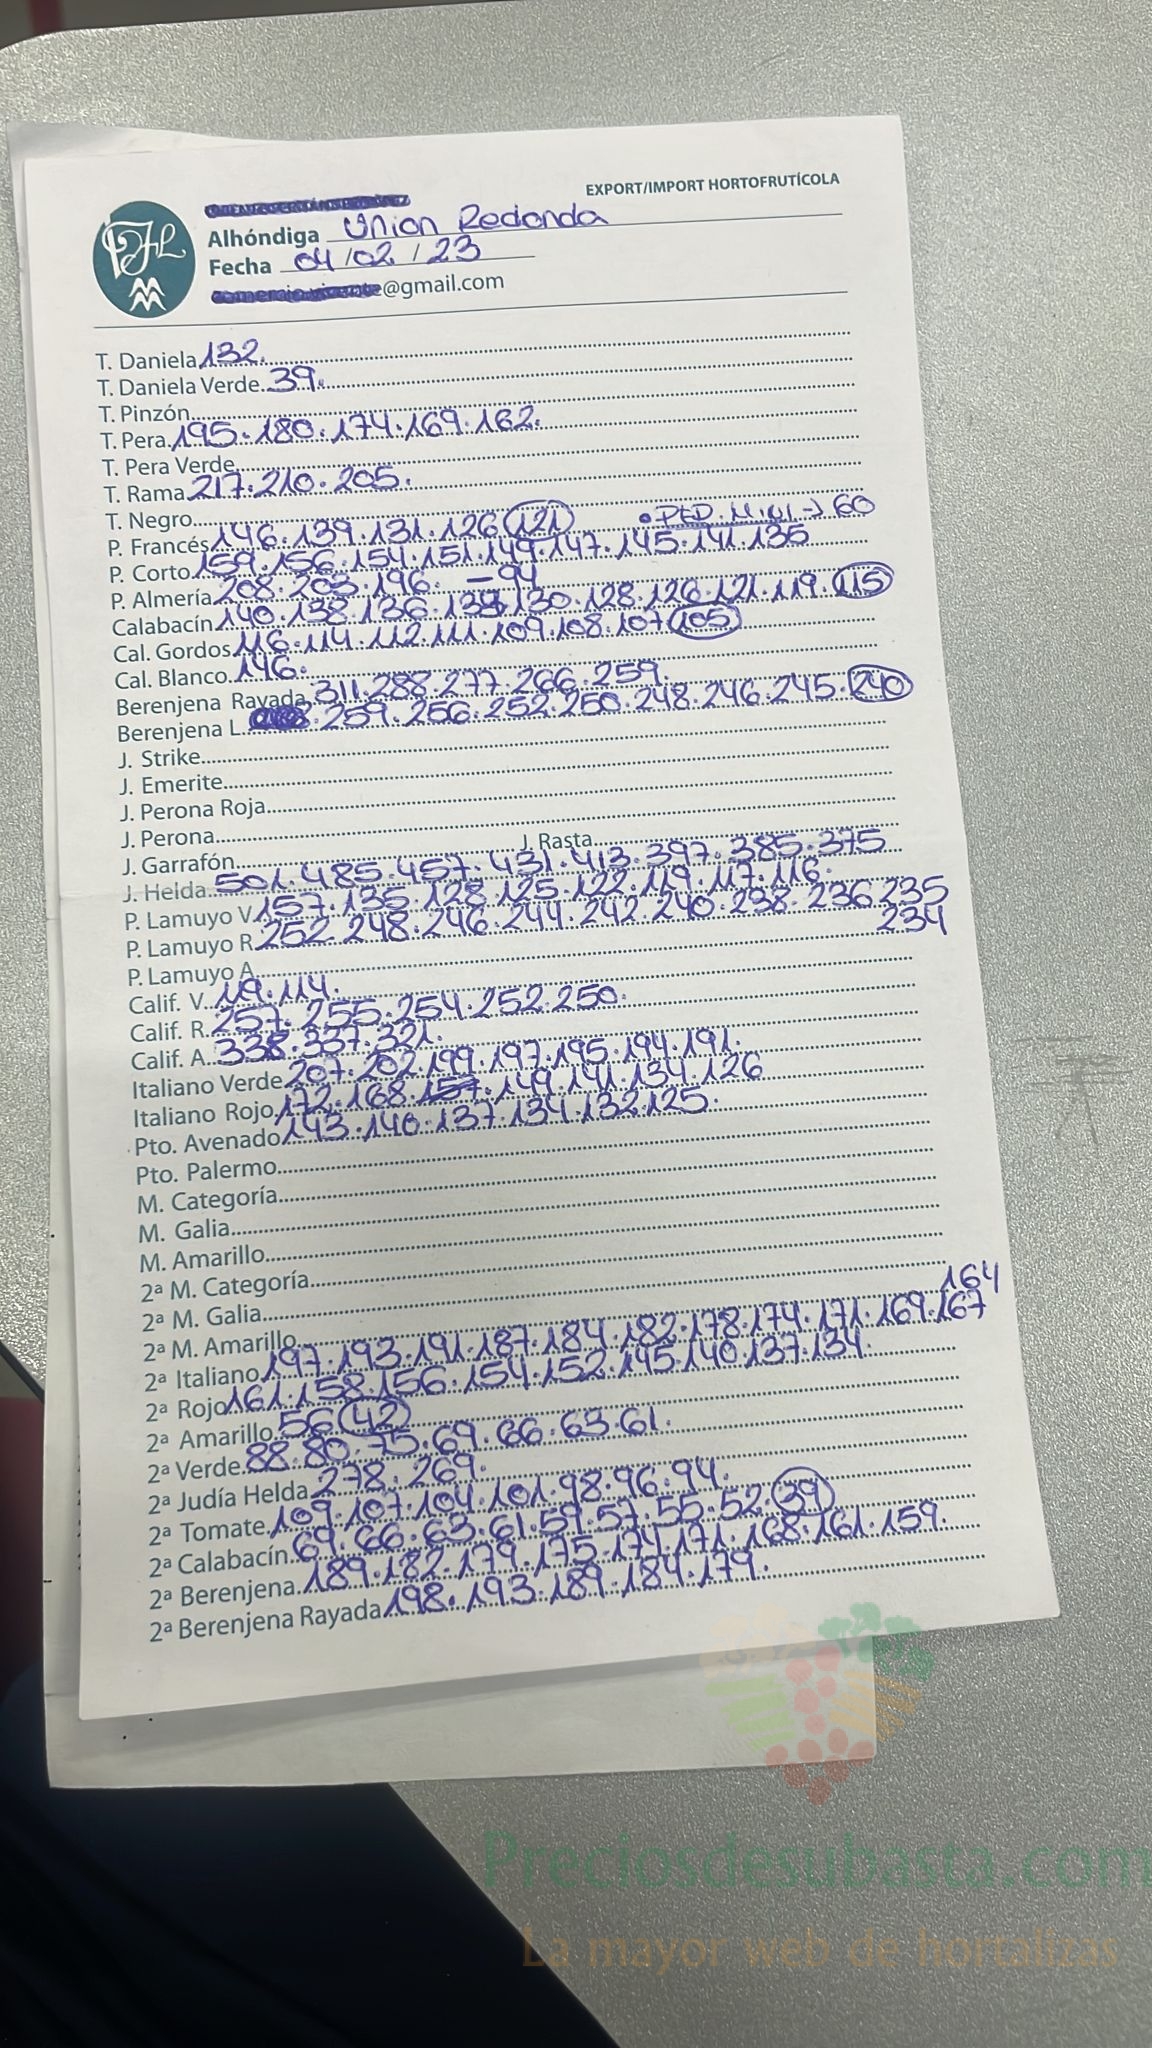 EXPORT/IMPORT HORTOFRUTÍCOLA
Alhóndiga Union Redonda
Fecha 04/02/23
@gmail.com
T. Daniela 132.
T. Daniela Verde 39.
T. Pinzón
T. Pera 195.180.174.169.162.
T. Pera Verde
T. Rama 217.210.205.
T. Negro
P. Francés 146.139.131.126 (121) • PED. Mini → 60
P. Corto 159.156.154.151.149.147.145.141.135
P. Almería 208.203.196. - 94
Calabacín 140.138.136.134.130.128.126.121.119.(115)
Cal. Gordos 116.114.112.111.109.108.107 (105)
Cal. Blanco 146.
Berenjena Rayada 311.288.277.266.259.
Berenjena L. .259.256.252.250.248.246.245.(240)
J. Strike
J. Emerite
J. Perona Roja
J. Perona
J. Garrafón J. Rasta
J. Helda 501.485.457.431.413.397.385.375
P. Lamuyo V 157.135.128.125.122.119.117.116.
P. Lamuyo R 252.248.246.244.242.240.238.236 235
234
P. Lamuyo A
Calif. V. 119.114.
Calif. R. 257.255.254.252.250.
Calif. A. 338.337.321.
Italiano Verde 207.202.199.197.195.194.191.
Italiano Rojo 172.168.157.149.141.134.126
Pto. Avenado 143.140.137.134.132.125.
Pto. Palermo
M. Categoría
M. Galia
M. Amarillo
2ª M. Categoría
2ª M. Galia
2ª M. Amarillo
164
2ª Italiano 197.193.191.187.184.182.178.174.171.169.167
2ª Rojo 161.158.156.154.152.145.140.137.134.
2ª Amarillo 56 (42)
2ª Verde 88.80.75.69.66.63.61.
2ª Judía Helda 278.269.
2ª Tomate 109.107.104.101.98.96.94.
2ª Calabacín 69.66.63.61.59.57.55.52.(39)
2ª Berenjena 189.182.179.175.174.171.168.161.159.
2ª Berenjena Rayada 198.193.189.184.179.
Preciosdesubasta.com
La mayor web de hortalizas